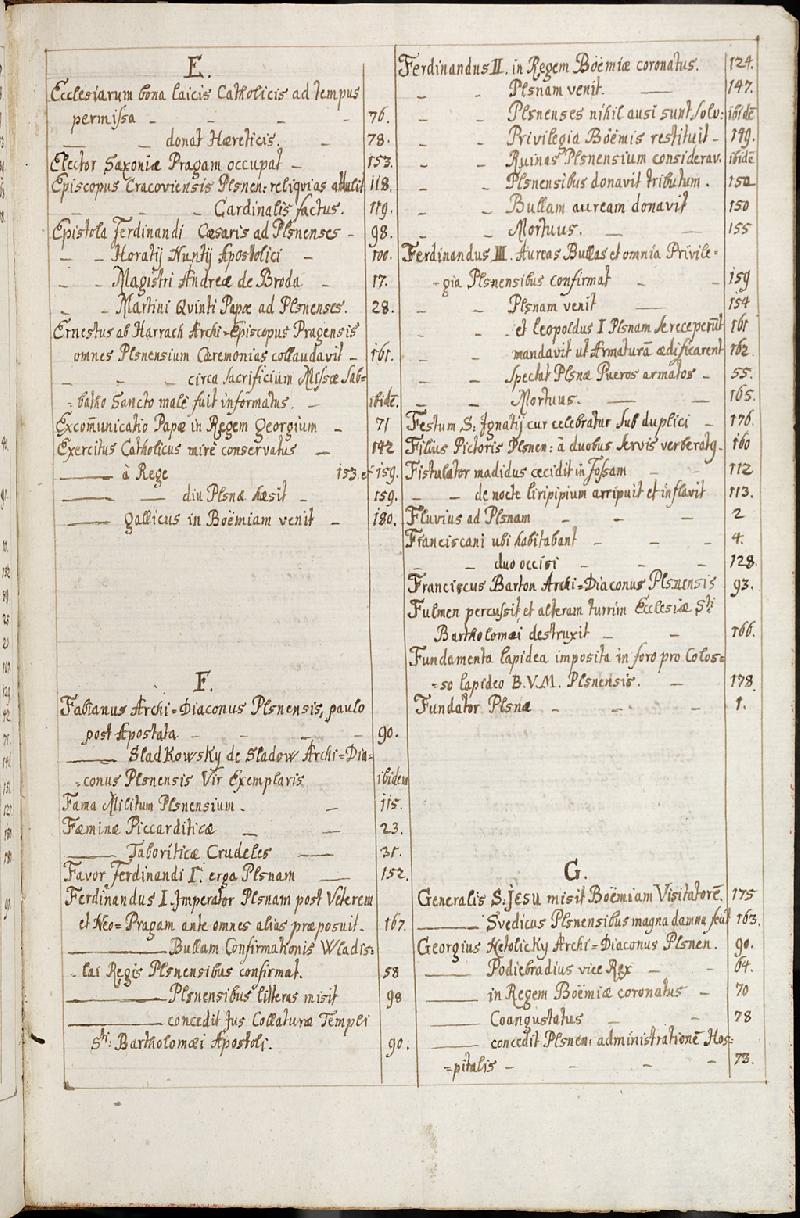 E.
Ecclesiarum bona laicis Catholicis ad tempus
permissa - - - 76.
- - donat Hæreticis. - 78.
Elector Saxoniæ Pragam occupat - 153.
Episcopus Cracoviensis Plsnen: reliquias attulit 118.
- - - Cardinalis factus. 119.
Epistola Ferdinandi Cæsaris ad Plsnenses - 98.
- - Horatij Nuntij Apostolici - 100.
- - Magistri Andreæ de Broda - 17.
- - Martini Quinti Papæ ad Plsnenses. 28.
Ernestus ab Harrach Archi=Episcopus Pragensis
omnes Plsnensium Cæremonias collaudavit - 161.
- - - circa sacrificium Missæ Sab=
batho Sancto malè fuit informatus. - ibidē.
Excom̄unicatio Papæ in Regem Georgium - 71
Exercitus Catholicus mirè conservatus - 142
—— à Rege 153 et 159.
—— diu Plsnæ hæsit - 159.
—— gallicus in Boëmiam venit - 180.
F.
Fabianus Archi=Diaconus Plsnensis, paulo
post Apostata. - - - 90.
—— Sladkowsky de Sladow Archi=Dia=
=conus Plsnensis Vir Exemplaris ibidem
Fama Militum Plsnensium. - 115.
Fæminæ Piccarditicæ - - 23.
—— Taboriticæ Crudeles — 31.
Favor Ferdinandi I.i erga Plsnam - 152.
Ferdinandus I. Imperator Plsnam post Veterem
et Neo=Pragam ante omnes alias præposuit. 167.
—— Bullam Confirmationis Wladis=
lai Regis Plsnensibus confirmat. 58
—— Plsnensibus litteras misit 98
—— concedit Jus Collaturæ Templi
Sti: Bartholomæi Apostoli. 90.
Ferdinandus II. in Regem Boëmiæ coronatus. 124.
- - Plsnam venit. — 147.
- - Plsnenses nihil ausi sunt solv: ibidē
- - Privilegia Boëmis restituit - 149.
- - Ruinas Plsnensium considerav. ibidē
- - Plsnensibus donavit tributum. 150
- - Bullam auream donavit 150
- - Mortuus. - - 155
Ferdinandus III. Aureas Bullas et omnia Privile=
=gia Plsnensibus confirmat - 159
- - Plsnam venit — 154
- - et Leopoldus I Plsnam se receperūt 161
- - mandavit ut Armaturā ædificarent 162
- - spectat Plsnæ Pueros armatos - 55.
- - Mortuus. — - 165.
Festum S: Ignatij cur celebratur sub duplici - 176.
Filius Pictoris Plsnen: à duobus servis verberatg. 160
Fistulator madidus cecidit in fossam - 112
- - de nocte liripipium arripuit et inflavit 113.
Fluvius ad Plsnam - - - 2
Franciscani ubi habitabant - - - 4.
- - duo occisi - - - 128.
Franciscus Barton Archi=Diaconus Plsnensis 93.
Fulmen percussit et alteram turrim Ecclesiæ Sti
Bartholomæi destruxit - - 166.
Fundamenta lapidea imposita in foro pro Colos=
=so lapideo B.V.M. Plsnensis. - 178.
Fundator Plsnæ - - - 1.
G.
Generalis S. Jesu misit Boëmiam Visitatorē. 175
—— Svedicus Plsnensibus magna damna fecit 163.
Georgius Netolicky Archi=Diaconus Plsnen. 90.
—— Podiebradius vice Rex - - 64.
—— in Regem Boëmiæ coronatus - 70
—— Coangustatus - - 78
—— concedit Plsnen: administrationē Hos=
=pitalis - - - - 73.